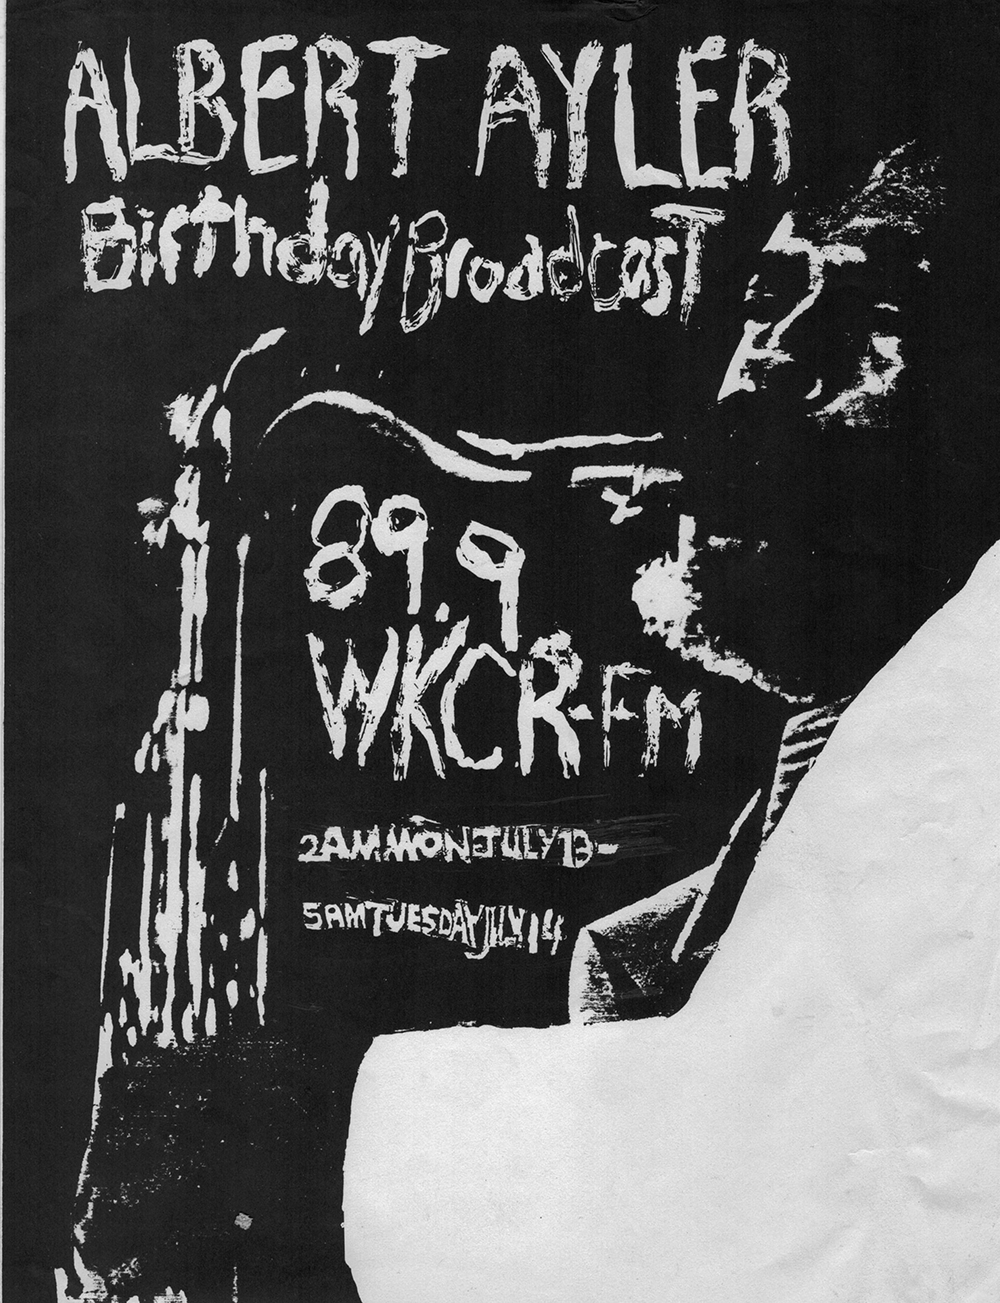 ALBERT AYLER
Birthday Broadcast
89.9
WKCR-FM
2AM MON JULY 13-
5AM TUESDAY JULY 14